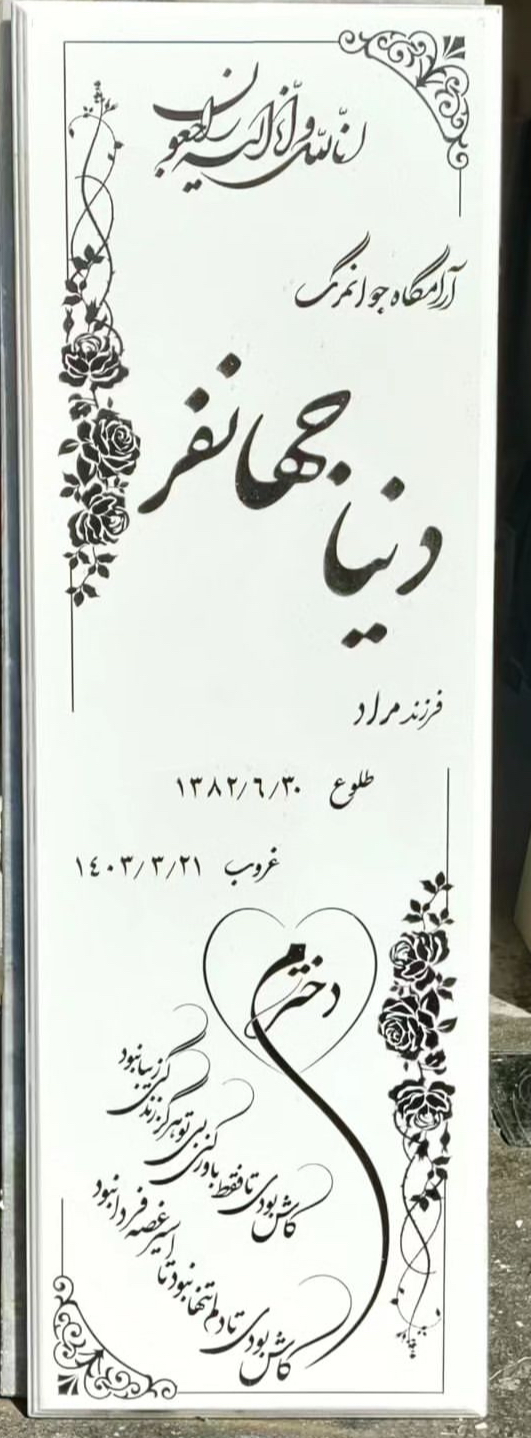 انا لله و انا الیه راجعون
آرامگاه جوانمرگ
دنیا جهانفر
فرزند مراد
طلوع ۱۳۸۲/۶/۳۰
غروب ۱۴۰۳/۳/۲۱
دخترم
کاش بودی تا فقط باور کنی بی تو هرگز زندگی زیبا نبود
کاش بودی تا دلم تنها نبود تا اسیر غصه فردا نبود